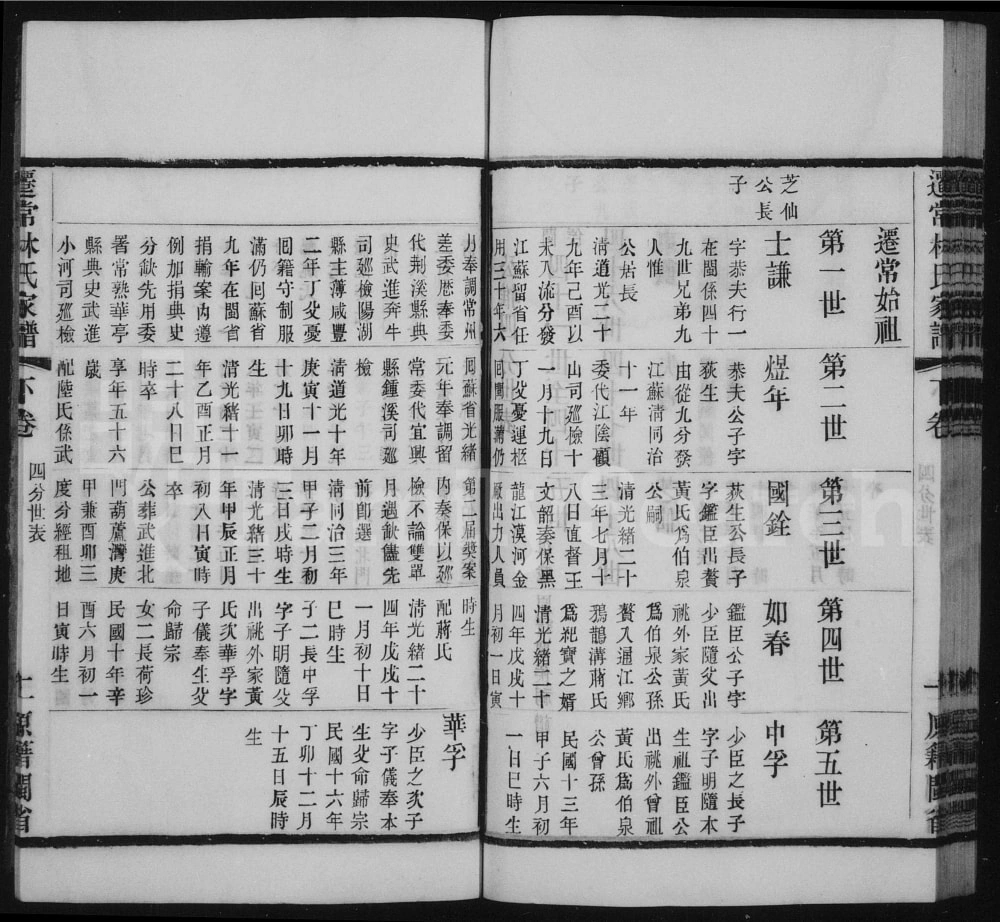 遷常林氏家譜
下卷
四分世表
一
原籍閩省
遷常始祖
芝仙
公長
子
第一世
士謙
字恭夫行一
在閩係四十
九世兄弟九
人惟
公居長
清道光二十
九年己酉以
未入流分發
江蘇留省任
用三十年六
第二世
煜年
恭夫公子字
荻生
由從九分發
江蘇清同治
十一年
委代江陰顧
山司廵檢十
一月十九日
丁父憂運柩
囘閩服滿仍
第三世
國銓
荻生公長子
字鑑臣出贅
黃氏爲伯泉
公嗣
清光緒二十
三年七月十
八日直督王
文韶奏保黑
龍江漠河金
廠出力人員
第四世
如春
鑑臣公子字
少臣隨父出
祧外家黃氏
爲伯泉公孫
贅入通江鄉
鴉鵲溝蔣氏
爲祀寶之婿
清光緒二十
四年戊戌十
月初一日寅
第五世
中孚
少臣之長子
字子明隨本
生祖鑑臣公
出祧外曾祖
黃氏爲伯泉
公曾孫
民國十三年
甲子六月初
一日巳時生
月奉調常州
差委歷奉委
代荆溪縣典
史武進奔牛
司廵檢陽湖
縣主薄咸豐
二年丁父憂
囘籍守制服
滿仍囘蘇省
九年在閩省
捐輸案內遵
例加捐典史
分缺先用委
署常熟華亭
縣典史武進
小河司廵檢
囘蘇省光緒
元年奉調留
常委代宜興
縣鍾溪司廵
檢
清道光十年
庚寅十一月
十九日卯時
生
清光緒十一
年乙酉正月
二十八日巳
時卒
享年五十六
歲
配陸氏係武
第一屆奬案
內奏保以廵
檢不論雙單
月遇缺儘先
前卽選
清同治三年
甲子二月初
三日戌時生
清光緒三十
年甲辰正月
初八日寅時
卒
公葬武進北
門葫蘆灣庚
甲兼酉卯三
度分經租地
時生
配蔣氏
清光緒二十
四年戊戌十
一月初十日
巳時生
子二長中孚
字子明隨父
出祧外家黃
氏次華孚字
子儀奉生父
命歸宗
女二長荷珍
民國十年辛
酉六月初一
日寅時生
華孚
少臣之次子
字子儀奉本
生父命歸宗
民國十六年
丁卯十二月
十五日辰時
生
遷常林氏家譜
下卷
四分世表
二
原籍閩省